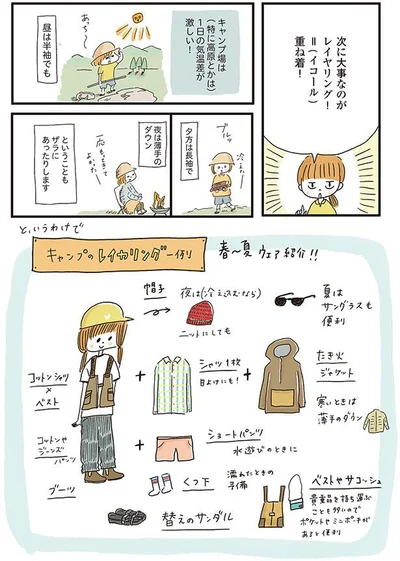 次に大事なのが
レイヤリング!
=(イコール)
重ね着!
キャンプ場は
(特に高原とかは)
1日の気温差が
激しい!
あっち〜
昼は半袖でも
ブルッ
夕方は長袖で
夜は薄手の
ダウン
ということも
ザラに
あったりします
というわけで
キャンプのレイヤリング一例
春〜夏ウェア紹介!!
帽子
夜は(冷え込むなら)
ニットにしても
夏は
サングラスも
便利
コットンシャツ
×
ベスト
+
シャツ1枚
日よけにも!
+
たき火
ジャケット
寒いときは
薄手のダウン
コットンや
ジーンズ
パンツ
+
ショートパンツ
水遊びのときに
ブーツ
くつ下
濡れたときの
予備
替えのサンダル
ベストやサコッシュ
貴重品を持ち運ぶ
ことも多いので
ポケットやミニポーチが
あると便利